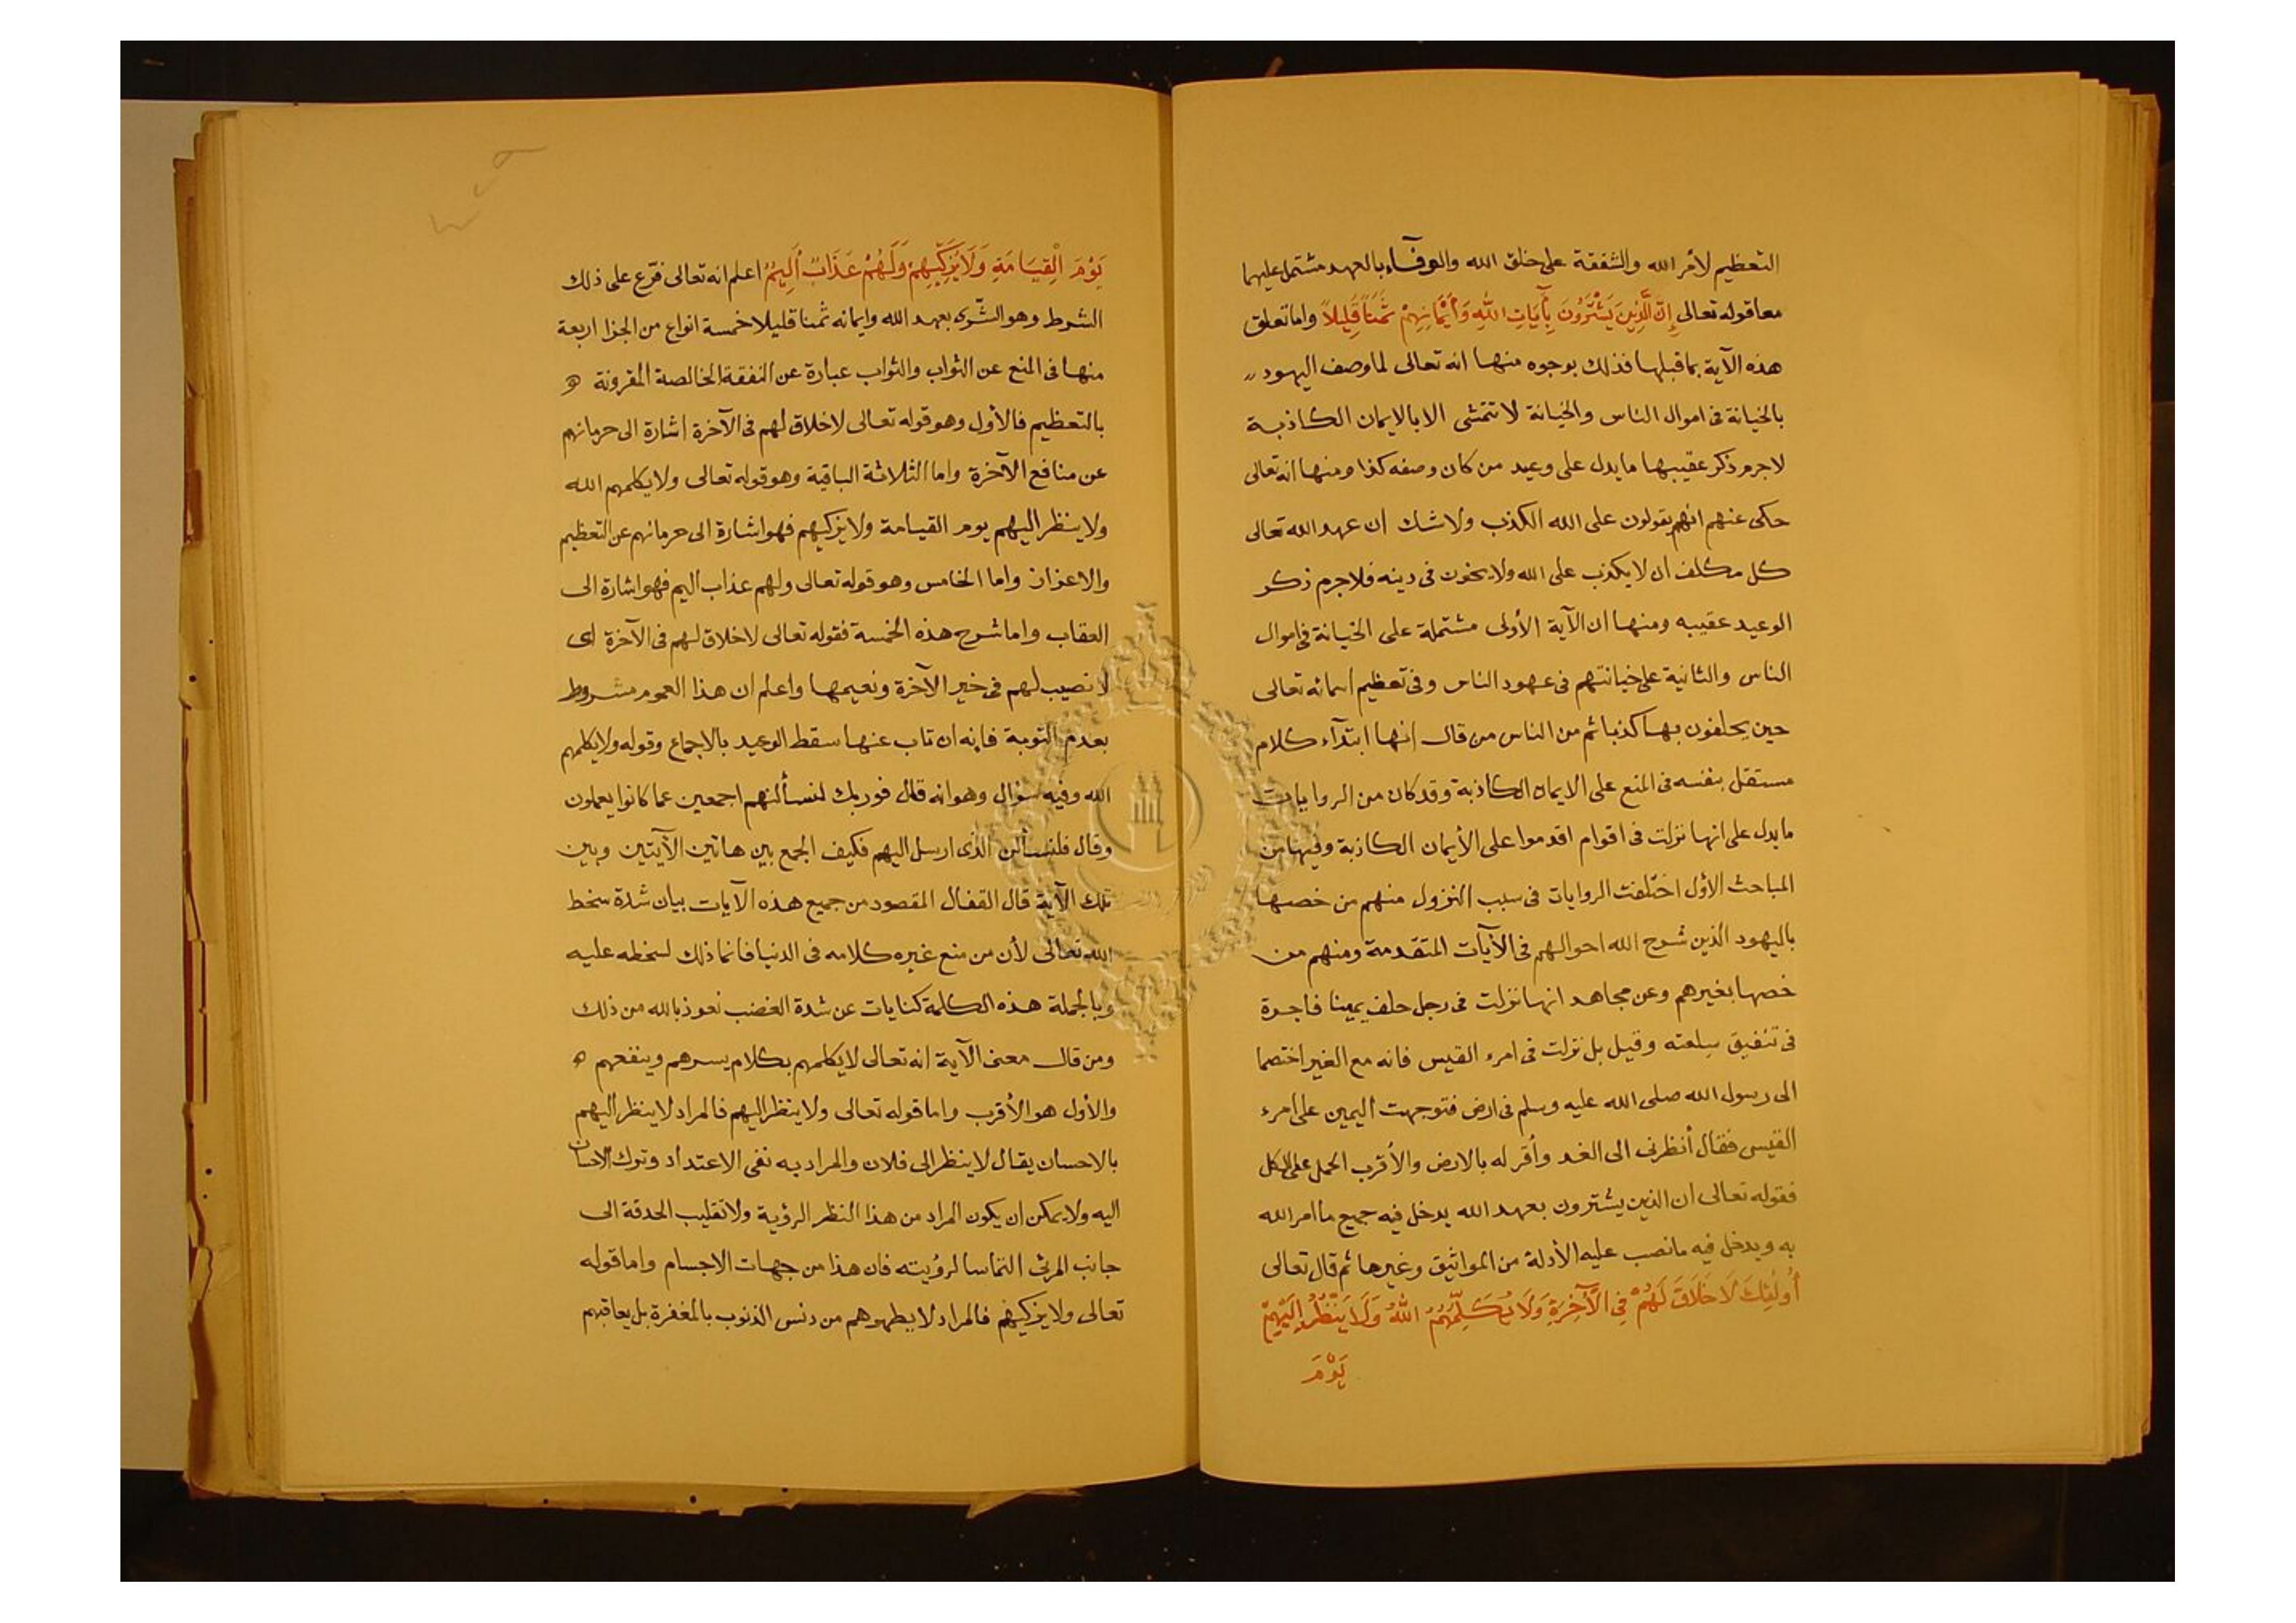 التعظيم لأمر الله والشفقة على خلق الله والوفآء بالعهد مشتمل عليهما
معا قوله تعالى إِنَّ الَّذِينَ يَشْتَرُونَ بِآيَاتِ اللَّهِ وَأَيْمَانِهِمْ ثَمَنًا قَلِيلاً واما تعلق
هذه الآية بما قبلها فذلك بوجوه منها انه تعالى لما وصف اليهود
بالخيانة فى اموال الناس والخيانة لا تتمشى الا بالايمان الكاذبة
لاجرم ذكر عقيبها ما يدل على وعيد من كان وصفه كذا ومنها انه تعالى
حكى عنهم انهم يقولون على الله الكذب ولا شك ان عهد الله تعالى
كل مكلف ان لا يكذب على الله ولا يخون فى دينه فلا جرم ذكر
الوعيد عقيبه ومنها ان الآية الأولى مشتملة على الخيانة فى اموال
الناس والثانية على خيانتهم فى عهود الناس وفى تعظيم اسمائه تعالى
حين يحلفون بها كذبا ثم من الناس من قال انها ابتدآء كلام
مستقل بنفسه فى المنع على الايمان الكاذبة وقد كان من الروايات
ما يدل على انها نزلت فى اقوام اقدموا على الأيمان الكاذبة وفيها من
المباحث الأول اختلفت الروايات فى سبب النزول منهم من خصها
باليهود الذين شرح الله احوالهم فى الآيآت المتقدمة ومنهم من
خصها بغيرهم وعن مجاهد انها نزلت فى رجل حلف يمينا فاجرة
فى تنفيق سلعته وقيل بل نزلت فى امرء القيس فانه مع الغير اختصما
الى رسول الله صلى الله عليه وسلم فى ارض فتوجهت اليمين على امرء
القيس فقال أنظرنى الى الغد وأقر له بالارض والأقرب الحمل على الكل
فقوله تعالى ان الذين يشترون بعهد الله يدخل فيه جميع ما امر الله
به ويدخل فيه ما نصب عليه الأدلة من المواثيق وغيرها ثم قال تعالى
أُولَٰئِكَ لَا خَلَاقَ لَهُمْ فِي الْآخِرَةِ وَلَا يُكَلِّمُهُمُ اللَّهُ وَلَا يَنْظُرُ إِلَيْهِمْ
يَوْمَ
يَوْمَ الْقِيَامَةِ وَلَا يُزَكِّيهِمْ وَلَهُمْ عَذَابٌ أَلِيمٌ اعلم انه تعالى فرّع على ذلك
الشرط وهو الشّرى بعهد الله وايمانه ثمنا قليلا خمسة انواع من الجزا اربعة
منها فى المنع عن الثواب والثواب عبارة عن النفقة الخالصة المقرونة
بالتعظيم فالأول وهو قوله تعالى لاخلاق لهم فى الآخرة اشارة الى حرمانهم
عن منافع الآخرة واما الثلاثة الباقية وهو قوله تعالى ولا يكلمهم الله
ولا ينظر اليهم يوم القيامة ولا يزكيهم فهو اشارة الى حرمانهم عن التعظيم
والاعزاز واما الخامس وهو قوله تعالى ولهم عذاب اليم فهو اشارة الى
العقاب واما شرح هذه الخمسة فقوله تعالى لاخلاق لهم فى الآخرة اى
لا نصيب لهم فى خير الآخرة ونعيمها واعلم ان هذا العموم مشروط
بعدم التوبة فانه ان تاب عنها سقط الوعيد بالاجماع وقوله ولا يكلمهم
الله وفيه سؤال وهو انه قال فوربك لنسألنهم اجمعين عما كانوا يعملون
وقال فلنسألن الذى ارسل اليهم فكيف الجمع بين هاتين الآيتين وبين
تلك الآية قال القفال المقصود من جميع هذه الآيات بيان شدة سخط
الله تعالى لأن من منع غيره كلامه فى الدنيا فانما ذلك لسخطه عليه
وبالجملة هذه الكلمة كنايات عن شدة الغضب نعوذ بالله من ذلك
ومن قال معنى الآية انه تعالى لا يكلمهم بكلام يسرهم وينفعهم
والأول هو الأقرب واما قوله تعالى ولا ينظر اليهم فالمراد لا ينظر اليهم
بالاحسان يقال لا ينظر الى فلان والمراد به نفى الاعتداد وترك الاحسان
اليه ولا يمكن ان يكون المراد من هذا النظر الرؤية ولا تقليب الحدقة الى
جانب المرئى التماسا لرؤيته فان هذا من جهات الاجسام واما قوله
تعالى ولا يزكيهم فالمراد لا يطهرهم من دنس الذنوب بالمغفرة بل يعاقبهم